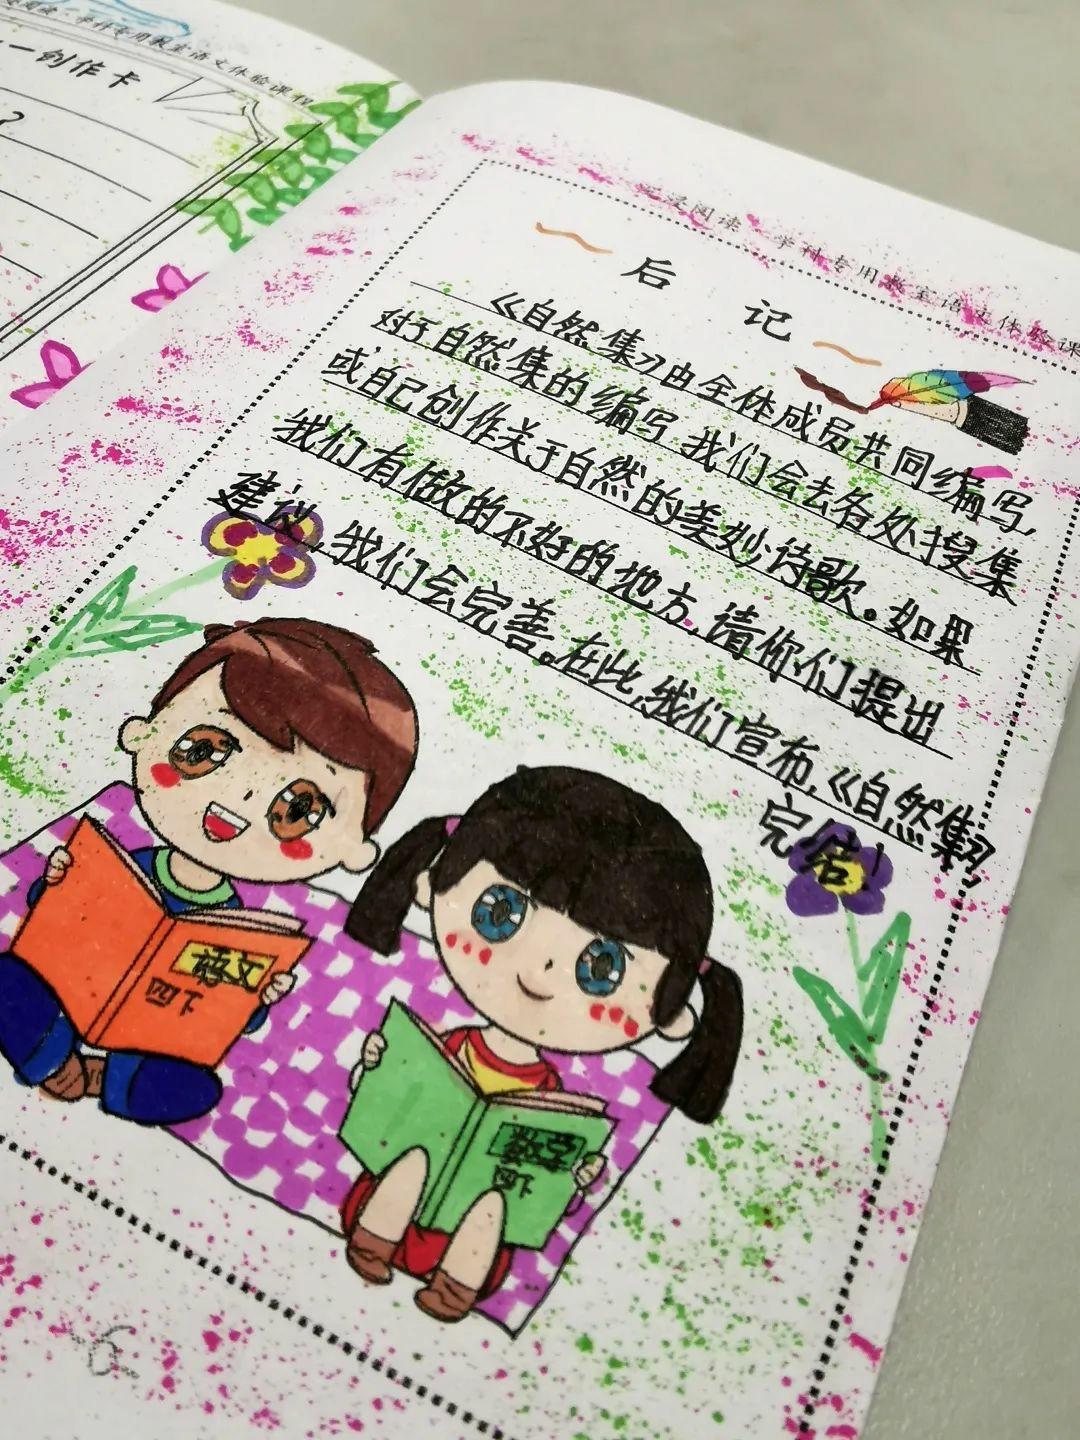 学科专用教室语文体验课程
一创作卡
?
爱阅读·学科专用教室语文体验课
后 记
《自然集》由全体成员共同编写,
对于自然集的编写 我们会去各处搜集
或自己创作关于自然的美妙诗歌。如果
我们有做的不好的地方,请你们提出
建议,我们会完善。在此,我们宣布,《自然集》,
完结!
语文
四下
数学
四下
6